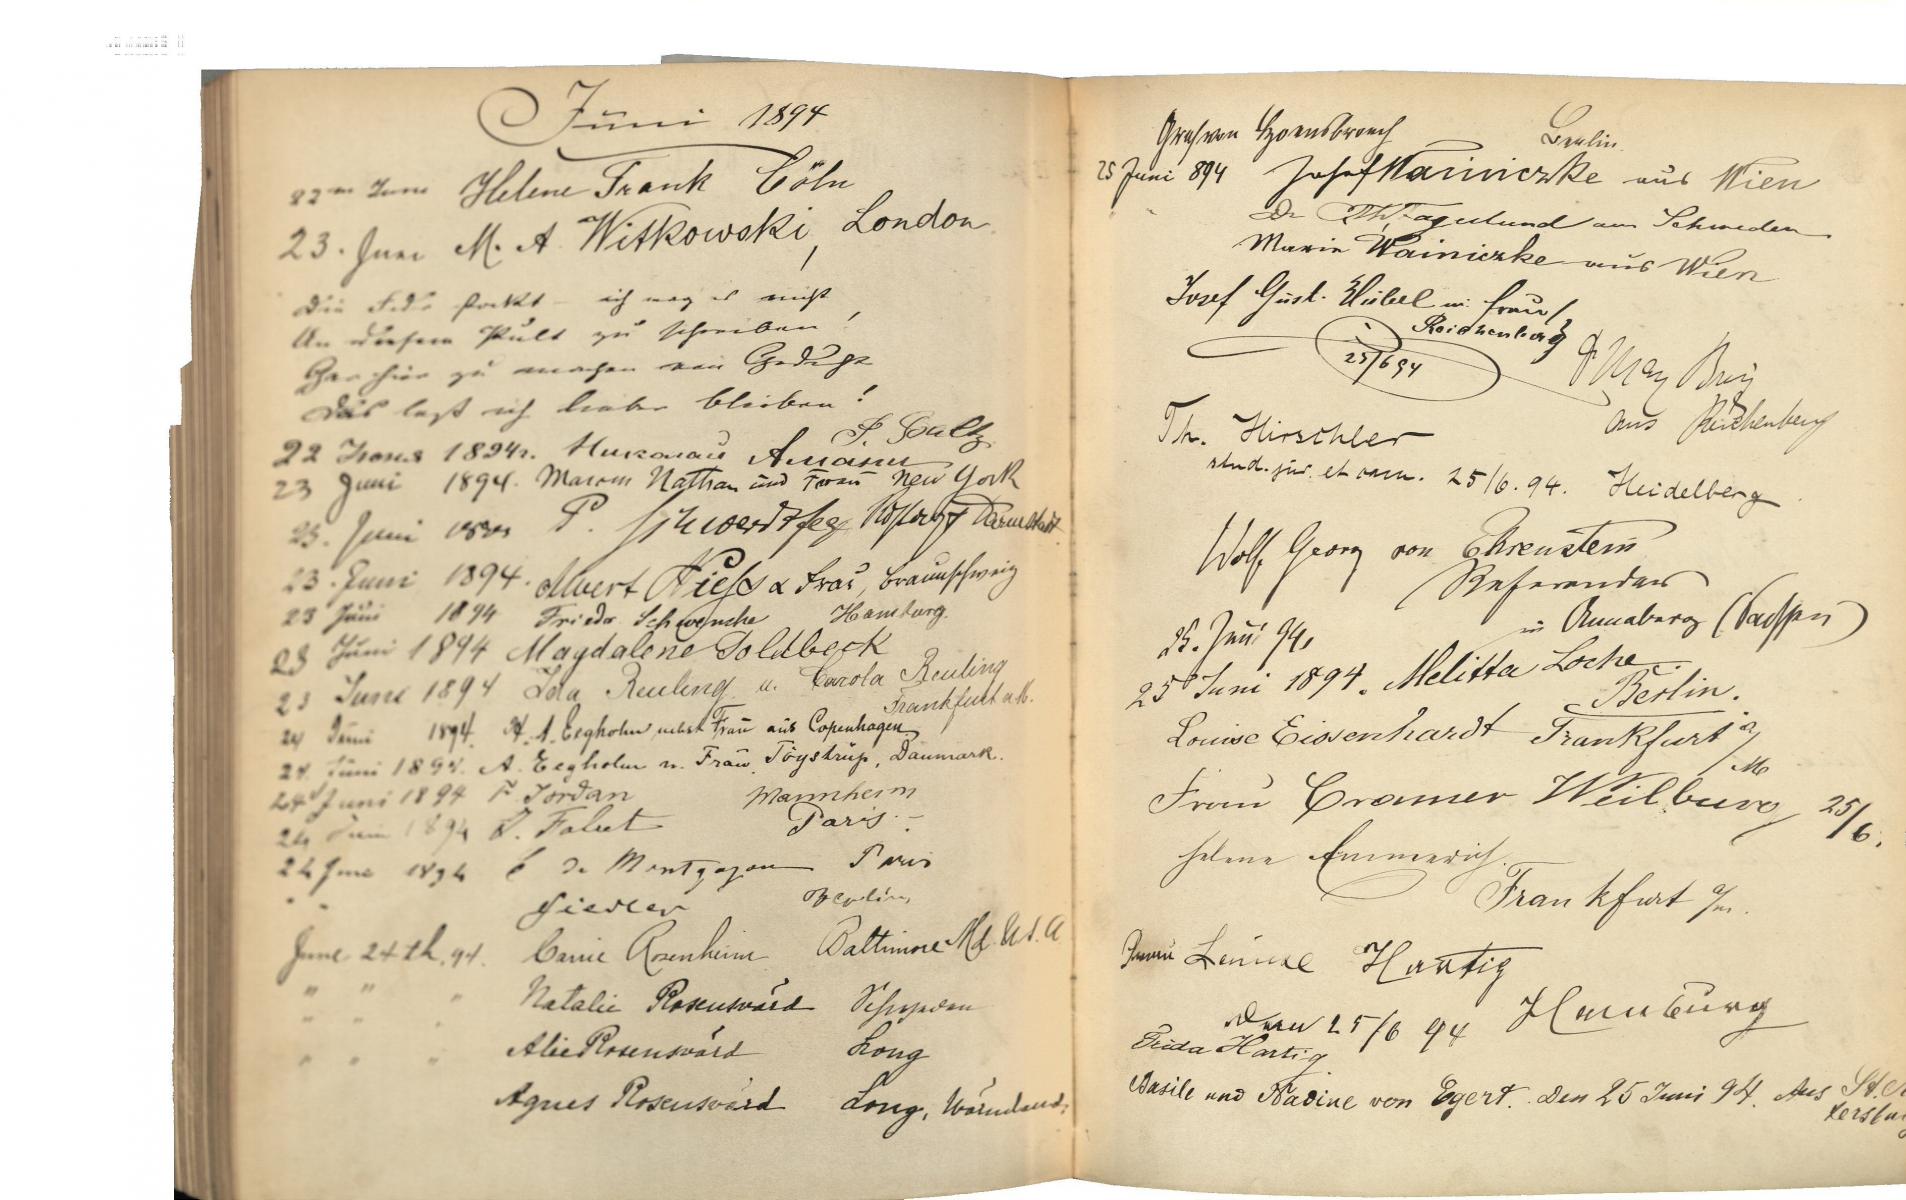 Juni 1894
22ten Juni Helene Frank Cöln
23. Juni M. A. Witkowski, London
Die Feder stockt – ich mag es nicht
An diesem Pult zu schreiben!
Gar hier zu machen ein Gedicht
Das laß ich lieber bleiben!
22 1894.
23 Juni 1894. Nathan und Frau New York
23. Juni P. Darmstadt
23. Juni 1894. Albert & Frau, Braunschweig
23 Juni 1894 Frieda Schwencke Hamburg.
23 Juni 1894 Magdalene Goldbeck
23 June 1894 Ida Reuling u. Carola Reuling
Frankfurt a. M.
24 Juni 1894. A. A. Eegholm nebst Frau aus Copenhagen
24. Juni 1894. A. Eegholm n. Frau, Töystrup, Danmark.
24 Juni 1894 F. Jordan Mannheim
24 Juni 1894 Falret Paris.
24 June 1894 de Paris
" " Fiedler Berlin
June 24th. 94. Carrie Rosenheim Baltimore Md. U.S.A
" " " Natalie Rosensvärd Schweden
" " " Alie Rosensvärd Long
" " " Agnes Rosensvärd Long, Wärmland.
Graf von Hoensbroech Berlin
25 Juni 894 Josef Wainiczke aus Wien
Dr Th. Fagerlund aus Schweden
Marie Wainiczke aus Wien
Josef Gust. Hübel m. Frau
Reichenberg
25/6 94
Dr Max
aus Reichenberg
Th. Hirschler
stud. jur. et cam. 25/6. 94. Heidelberg
Wolf Georg von Ehrenstein
Referendar
in Annaberg (Sachsen)
25. Juni 94.
25 Juni 1894. Melitta Locke
Berlin.
Louise Eissenhardt Frankfurt a/M
Frau Cramer Weilburg 25/6.
Helene Emmerich.
Frankfurt a/m.
Frau Louise Hartig
Hamburg
Den 25/6 94
Frida Hartig
Basile und Nadine von Egert. Den 25 Juni 94. Aus St.